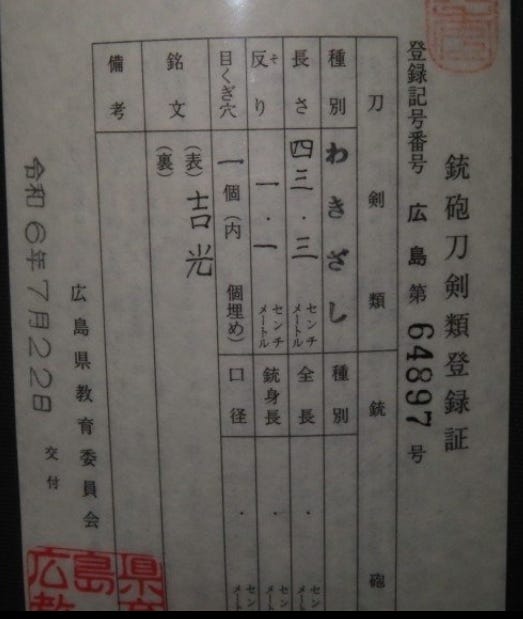 銃砲刀剣類登録証
登録記号番号 広島第 64897 号
刀剣類
銃砲
種別 わきざし
長さ 四三.三 センチメートル
反り そ 一.一 センチメートル
目くぎ穴 一個(内 個埋め)
銘文 (表) 吉光
(裏)
備考
種別
全長 . センチメー
銃身長 . センチメー
口径 . センチメー
広島県教育委員会
令和6年7月22日 交付
広島県